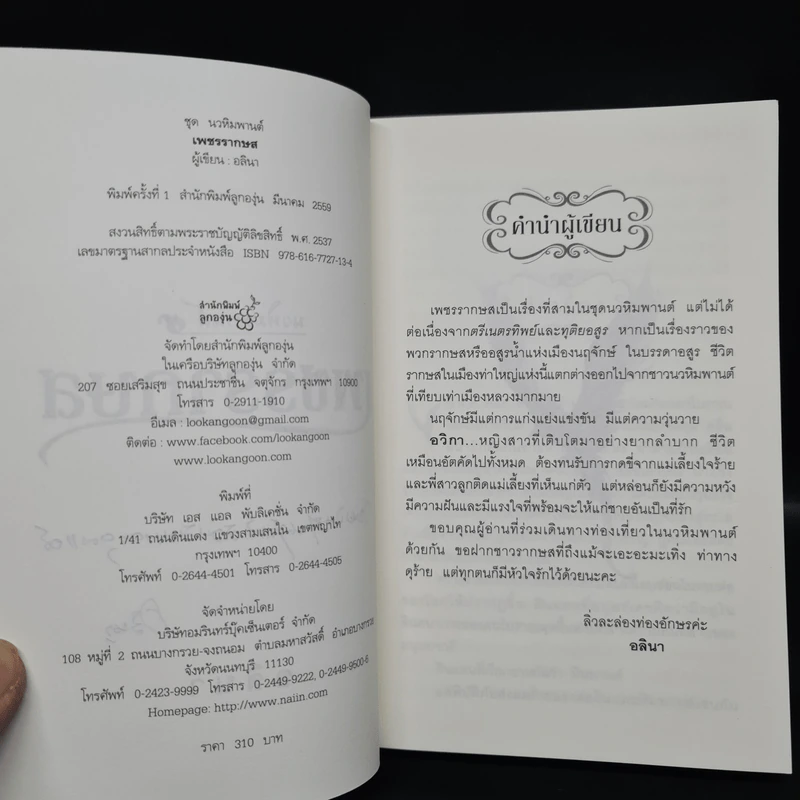 ชุด นวหิมพานต์
เพชรรากษส
ผู้เขียน : อลินา
พิมพ์ครั้งที่ 1 สำนักพิมพ์ลูกองุ่น มีนาคม 2559
สงวนสิทธิ์ตามพระราชบัญญัติลิขสิทธิ์ พ.ศ. 2537
เลขมาตรฐานสากลประจำหนังสือ ISBN 978-616-7727-13-4
สำนักพิมพ์
ลูกองุ่น
จัดทำโดยสำนักพิมพ์ลูกองุ่น
ในเครือบริษัทลูกองุ่น จำกัด
207 ซอยเสริมสุข ถนนประชาชื่น จตุจักร กรุงเทพฯ 10900
โทรสาร 0-2911-1910
อีเมล : lookangoon@gmail.com
ติดต่อ : www.facebook.com/lookangoon
www.lookangoon.com
พิมพ์ที่
บริษัท เอส แอล พับลิเคชั่น จำกัด
1/41 ถนนดินแดง แขวงสามเสนใน เขตพญาไท
กรุงเทพฯ 10400
โทรศัพท์ 0-2644-4501 โทรสาร 0-2644-4505
จัดจำหน่ายโดย
บริษัทอมรินทร์บุ๊คเซ็นเตอร์ จำกัด
108 หมู่ที่ 2 ถนนบางกรวย-จงถนอม ตำบลมหาสวัสดิ์ อำเภอบางกรวย
จังหวัดนนทบุรี 11130
โทรศัพท์ 0-2423-9999 โทรสาร 0-2449-9222, 0-2449-9500-6
Homepage: http://www.naiin.com
ราคา 310 บาท
คำนำผู้เขียน
เพชรรากษสเป็นเรื่องที่สามในชุดนวหิมพานต์ แต่ไม่ได้
ต่อเนื่องจากตรีเนตรทิพย์และทุติยอสูร หากเป็นเรื่องราวของ
พวกรากษสหรืออสูรน้ำแห่งเมืองนฤจักษ์ ในบรรดาอสูร ชีวิต
รากษสในเมืองท่าใหญ่แห่งนี้แตกต่างออกไปจากชาวนวหิมพานต์
ที่เทียบเท่าเมืองหลวงมากมาย
นฤจักษ์มีแต่การแก่งแย่งแข่งขัน มีแต่ความวุ่นวาย
อวิกา...หญิงสาวที่เติบโตมาอย่างยากลำบาก ชีวิต
เหมือนอัตคัดไปทั้งหมด ต้องทนรับการกดขี่จากแม่เลี้ยงใจร้าย
และพี่สาวลูกติดแม่เลี้ยงที่เห็นแก่ตัว แต่หล่อนก็ยังมีความหวัง
มีความฝันและมีแรงใจที่พร้อมจะให้แก่ชายอันเป็นที่รัก
ขอบคุณผู้อ่านที่ร่วมเดินทางท่องเที่ยวในนวหิมพานต์
ด้วยกัน ขอฝากชาวรากษสที่ถึงแม้จะเอะอะมะเทิ่ง ท่าทาง
ดุร้าย แต่ทุกตนก็มีหัวใจรักไว้ด้วยนะคะ
ลิ่วละล่องท่องอักษรค่ะ
อลินา